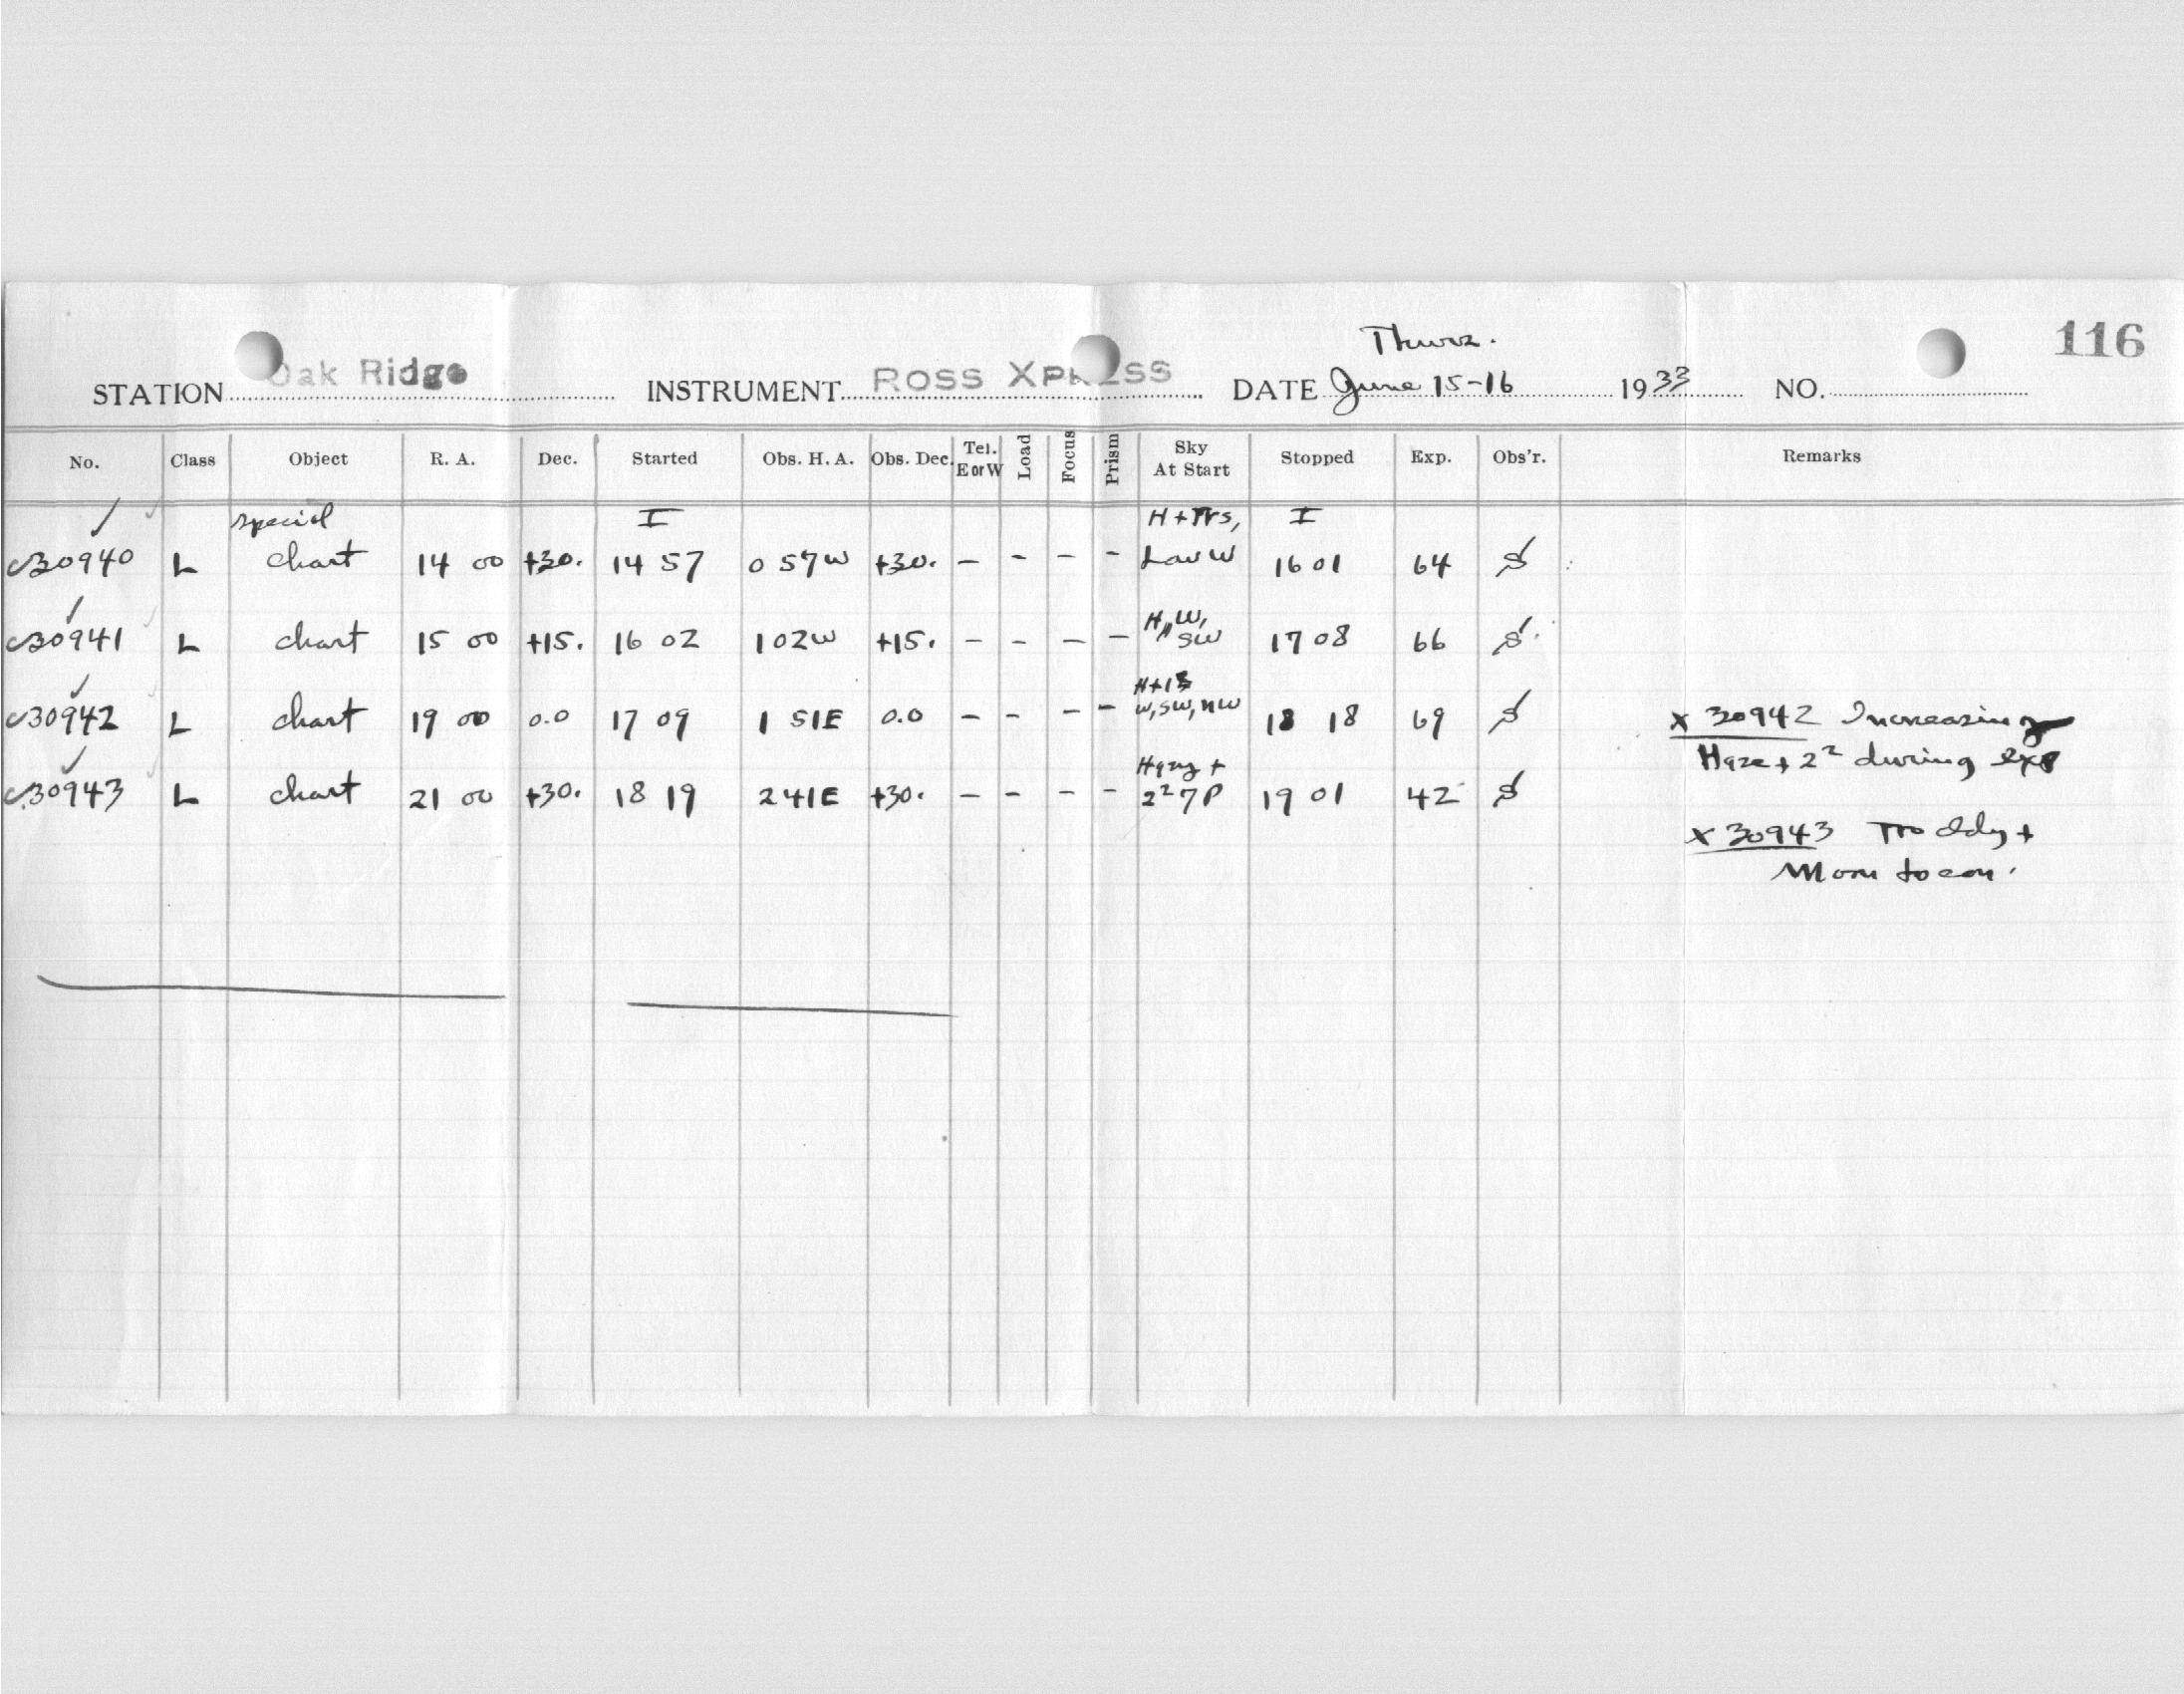 Thurs.
116
STATION Oak Ridge INSTRUMENT ROSS XPRESS DATE June 15-16 1933 NO.
No. Class Object R. A. Dec. Started Obs. H. A. Obs. Dec. Tel. E or W Load Focus Prism Sky At Start Stopped Exp. Obs'r. Remarks
special I H + I
30940 L chart 14 00 +30. 14 57 0 57W +30. - - - - W 16 01 64
H, W,
30941 L chart 15 00 +15. 16 02 1 02W +15. - - - - SW 17 08 66
H+
30942 L chart 19 00 0.0 17 09 1 51E 0.0 - - - - W, SW, NW 18 18 69 X 30942 Increasing
Haze + 2² during exp
Hazy +
30943 L chart 21 00 +30. 18 19 2 41E +30. - - - - 2² 7P 19 01 42
X 30943
Moon to con.